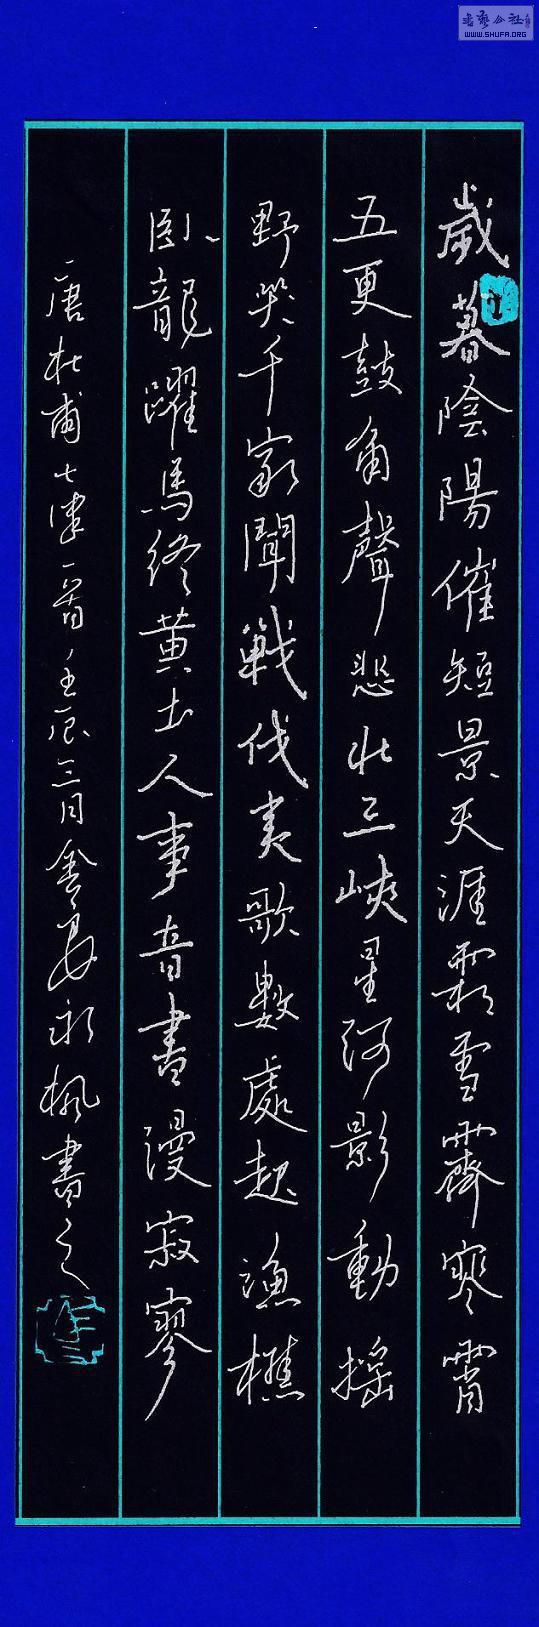 歲暮陰陽催短景天涯霜雪霽寒霄
五更鼓角聲悲壯三峽星河影動搖
野哭千家聞戰伐夷歌數處起漁樵
臥龍躍馬終黃土人事音書漫寂寥
唐杜甫七律一首 三月 永楓書之
書藝公社
WWW.SHUFA.ORG